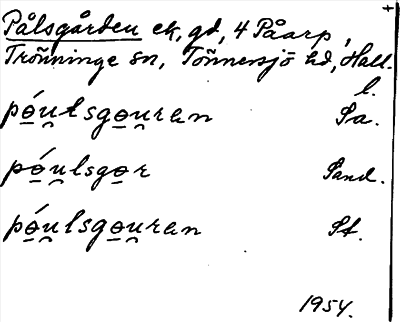 Pålsgården ek, gd, 4 Påarp,
Trönninge sn, Tönnersjö hd, Hall.
l.
pó̱u̯lsgo̱u̯ren Sa.
pó̱u̯lsgo̱r Sand.
pó̱u̯lsgo̱u̯ren St.
1954.